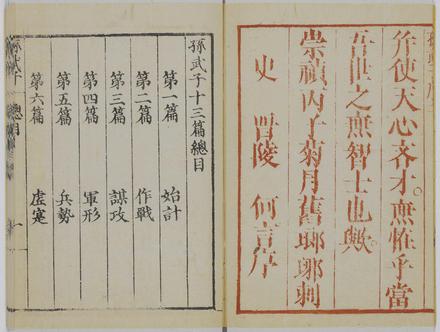 斧使天心吝才。無恠乎當
吾世之無智士也歟。
崇禎丙子菊月舊瑯琊刺
史 晋陵 何言序
孫武子十三篇總目
第一篇 始計
第二篇 作戰
第三篇 謀攻
第四篇 軍形
第五篇 兵勢
第六篇 虛寔
孫武子 總目 一